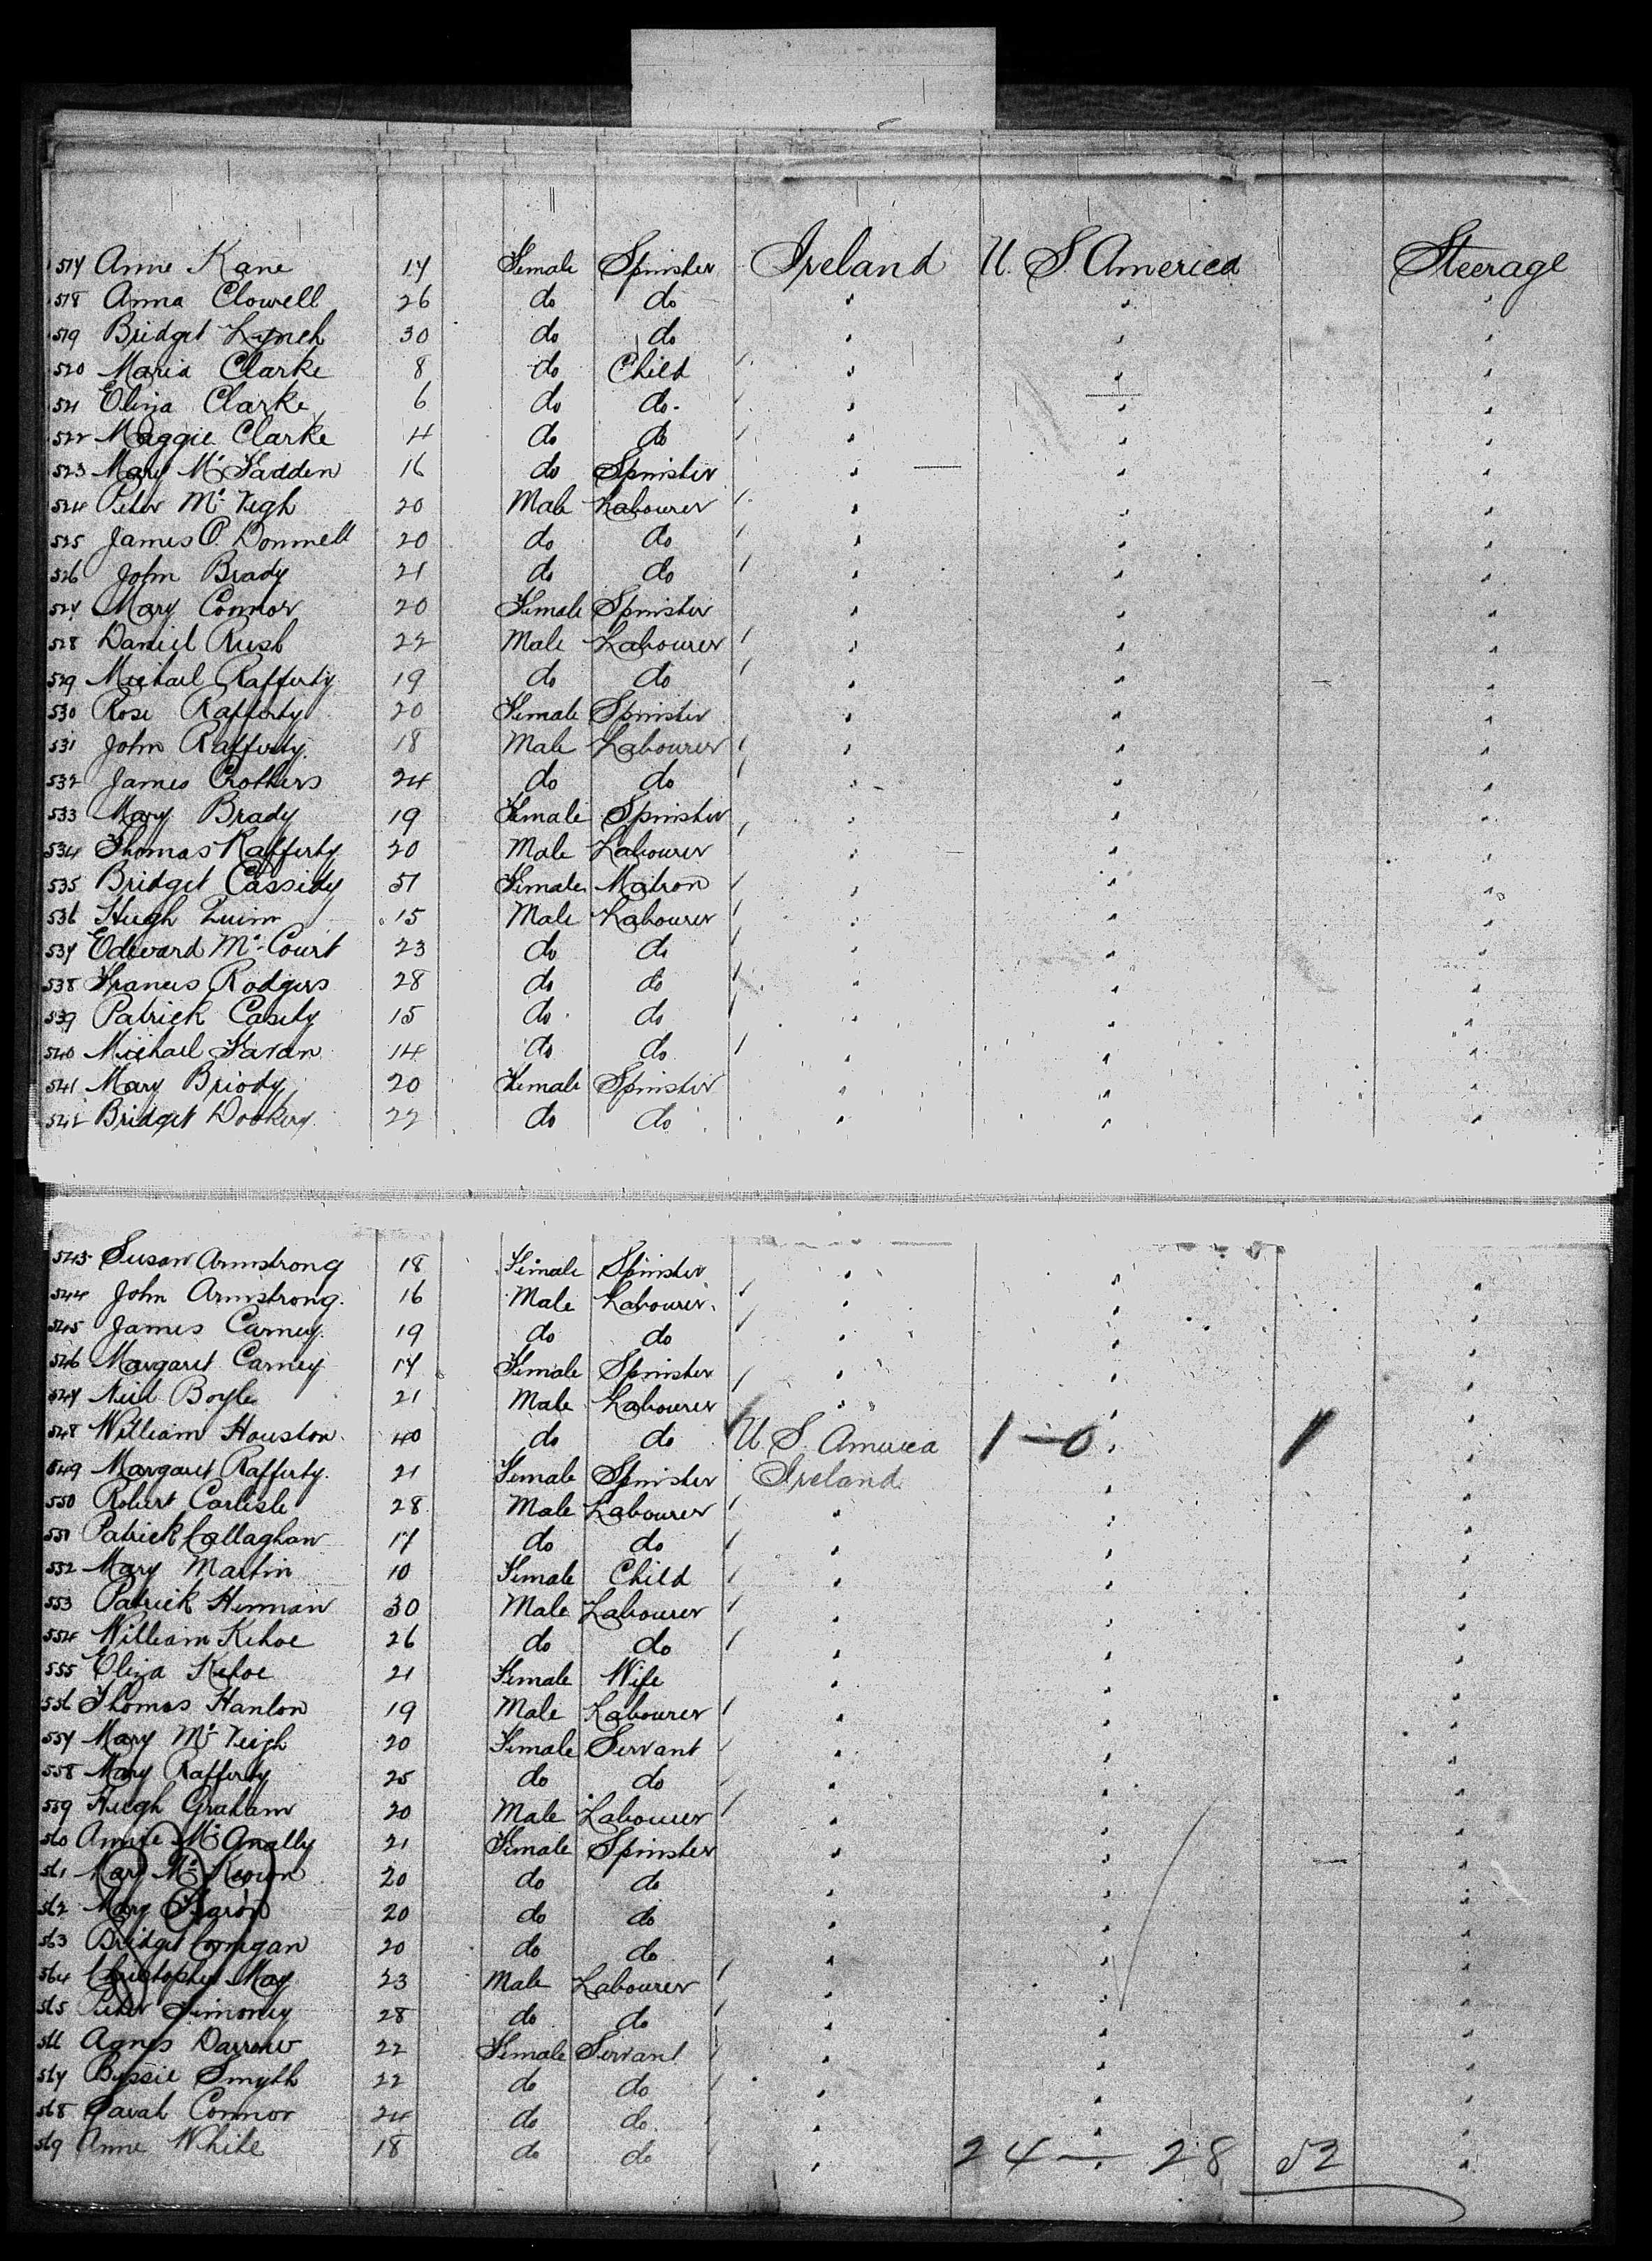 517 Anne Kane 17 Female Spinster Ireland U. S. America Steerage
518 Anna Clowell 26 do do " " "
519 Bridget Lynch 30 do do " " "
520 Maria Clarke 8 do Child " " "
521 Eliza Clarke 6 do do " " "
522 Maggie Clarke 4 do do " " "
523 Mary McFadden 16 do Spinster " " "
524 Peter McVegh 20 Male Labourer " " "
525 James O. Donnell 20 do do " " "
526 John Brady 21 do do " " "
527 Mary Connor 20 Female Spinster " " "
528 Daniel Rush 22 Male Labourer " " "
529 Michael Rafferty 19 do do " " "
530 Rose Rafferty 20 Female Spinster " " "
531 John Rafferty 18 Male Labourer " " "
532 James Crothers 24 do do " " "
533 Mary Brady 19 Female Spinster " " "
534 Thomas Rafferty 20 Male Labourer " " "
535 Bridget Cassidy 51 Female Matron " " "
536 Hugh Quinn 15 Male Labourer " " "
537 Edward McCourt 23 do do " " "
538 Francis Rodgers 28 do do " " "
539 Patrick Casely 15 do do " " "
540 Michael Favan 14 do do " " "
541 Mary Briody 20 Female Spinster " " "
542 Bridget Dockery 22 do do " " "
543 Susan Armstrong 18 Female Spinster " " "
544 John Armstrong 16 Male Labourer " " "
545 James Carney 19 do do " " "
546 Margaret Carney 17 Female Spinster " " "
547 Neil Boyle 21 Male Labourer " " "
548 William Houston 40 do do U. S. America 1-0 " 1 "
549 Margaret Rafferty 21 Female Spinster Ireland " "
550 Robert Carlisle 28 Male Labourer " " "
551 Patrick Callaghan 17 do do " " "
552 Mary Martin 10 Female Child " " "
553 Patrick Hernian 30 Male Labourer " " "
554 William Kehoe 26 do do " " "
555 Eliza Kehoe 21 Female Wife " " "
556 Thomas Hanlon 19 Male Labourer " " "
557 Mary McVeigh 20 Female Servant " " "
558 Mary Rafferty 25 do do " " "
559 Hugh Graham 20 Male Labourer " " "
560 Annie McAnally 21 Female Spinster " " "
561 Mary McKeown 20 do do " " "
562 Mary 20 do do " " "
563 Bridget Corrigan 20 do do " " "
564 Christopher May 23 Male Labourer " " "
565 Peter Timoney 28 do do " " "
566 Agnes Darrow 22 Female Servant " " "
567 Bessie Smyth 22 do do " " "
568 Sarah Connor 24 do do " " "
569 Anne White 18 do do " " "
24 — 28 52